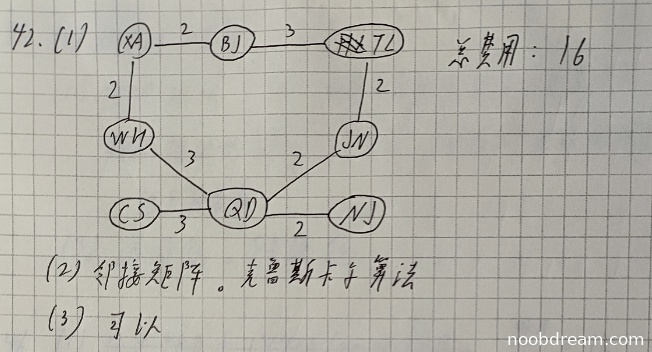 42. (1) XA 2 BJ 3 TL 总费用: 16
2 2
WH JN
3 2
CS 3 QD 2 NJ
(2) 邻接矩阵。克鲁斯卡尔算法
(3) 可以
noobdream.com